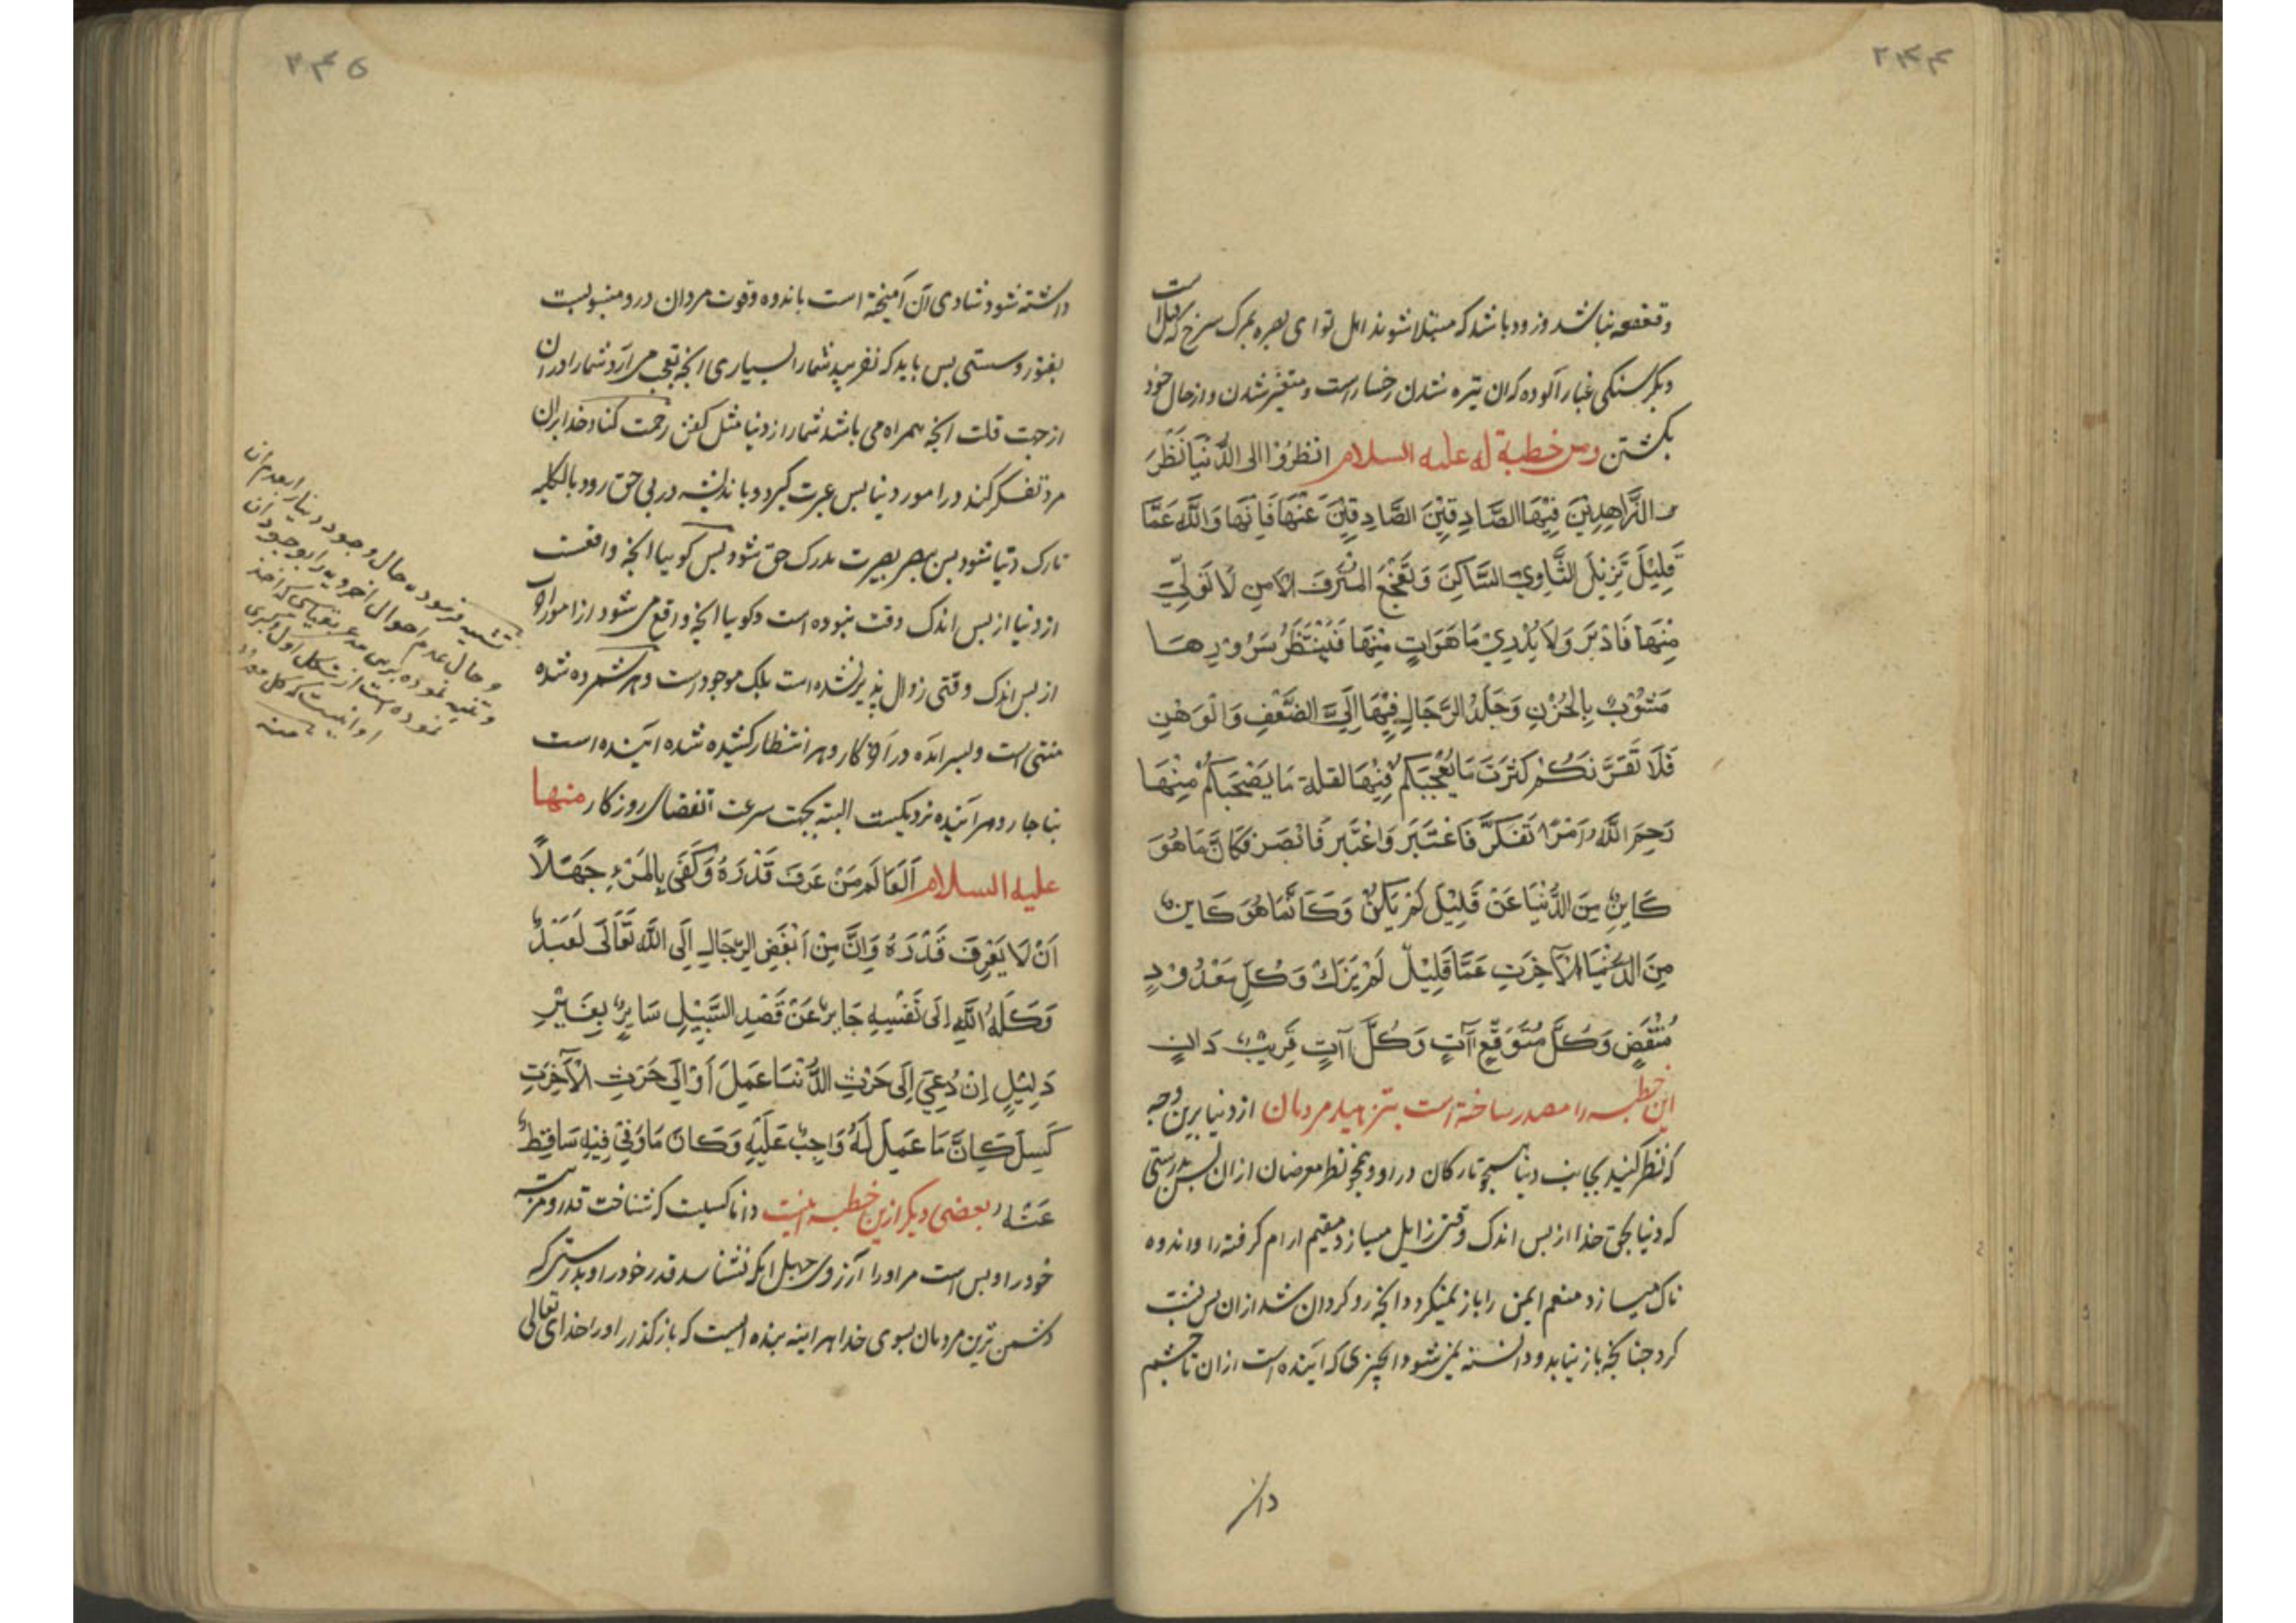 ۲۴۴
وقعقعه نباشد و زود باشد که مبتلا شوند اهل تو ای بصره بمرک سرخ که قتلست
و بکرسنکی غبار آلوده که ان تیره شدن رخسار است و متغیر شدن و از حال خود
بکشتن ومن خطبة له علیه السلام انظُرُوا الی الدُّنْیَا نَظَرَ
الزَّاهِدِیْنَ فِیْهَا الصَّادِقِیْنَ الصَّادِقِیْنَ عَنْهَا فَاِنَّهَا وَاللّٰه عَمَّا
قَلِیْلَ تَزِیْلَ الثَّاوِیَ السَّاکِنَ وَتَفْجَعُ المُتْرَفَ الاَمِنِ لَا تَوَلّٰی
مِنْهَا فَادْبَرَ وَلَا یُدْرِیْ مَا هَوَاتٍ مِنْهَا فَیُنْتَظَرُ سُرُوْرِهَا
مَشُوْبٌ بِالحُزْنِ وَجَلَدُ الرِّجَالِ فِیْهَا اِلَی الضَّعْفِ وَالْوَهْنِ
فَلَا تَغُرَّنَکُمْ کثرَتَ مَا یُعْجِبُکُمْ فِیْهَا لقلة مَا یَصْحَبُکُمْ مِنْهَا
رَحِمَ اللّٰهُ اَمْرًا تَفَکَّرَ فَاعْتَبَرَ وَاعْتَبَرَ فَابْصَرَ فَکَانَ مَا هُوَ
کَایِنٌ مِنَ الدُّنْیَا عَنْ قَلِیْلَ لَمْ یَکنْ وَکَانَمَا هُوَ کَایِنٌ
مِنَ الاٰخِرَتِ عَمَّا قَلِیْلّ لَمْ یَزَلْ وَکلِّ مَعْدُوْدٍ
مُنْقَضٍ وَکُلَّ مُتَوَقِّعٍ آتٍ وَکُلَّ آتٍ قَرِیْبٌ دَانٍ
این خطبه را مصدر ساخته است بتزهید مردمان از دنیا برین وجه
که نظر کنید بجانب دنیا همچو تارکان در او و همچو نظر معرضان ازان پس بدرستی
که دنیا بحق خدا از پس اندک وقتی زایل میسازد مقیم ارام کرفته را و اندوه
ناک میسازد منعم ایمن را باز نمیکردد انچه رو کردان شد ازان پس پشت
کرد چنانچه باز نیاید و دانسته نمی شود انچیزی که اینده است ازان تا چشم
داشته
۲۴۵
داشته شود شادی آن آمیخته است باندوه و قوت مردان درو منسوبست
بفتور و سستی پس باید که نفریبد شما را بسیاری انچه بتعجب می آرد شما را دران
از جهت قلت انچه همراه می باشد شما را از دنیا مثل کفن رحمت کناد خدا بران
مرد تفکر کند در امور دنیا پس عبرت کیرد و باندیشه در پی حق رود بالکلیه
تارک دنیا شود پس ببصر بصیرت مدرک حق شود پس کوییا انچه واقعست
از دنیا از پس اندک وقت نبوده است و کوییا انچه واقع می شود از امور اخروی
از پس اندک وقتی زوال پذیر نشده است بلک موجود است و هر شمرده شده
منتهی است و بسر امده در اخر کار و هر انتظار کشیده شده اینده است
بناچار و هر آینده نزدیکست البته بجهت سرعت انقضای روزکار منها
علیه السلام اَلعَالَم مَنْ عَرَفَ قَدْرَهُ وَکَفَی بِالمَرْءِ جَهَلاً
اَنْ لَا یَعْرِفَ قَدْرَهُ وَاِنَّ مِنْ اَبْغَضِ الرِّجَالِ اِلَی اللّٰه تَعَالَی لَعَبْدٌ
وَکَلَهُ اللّٰهِ اِلَی نَفْسِهِ جَایِرٌ عَنْ قَصْدِ السَّبِیْلِ سَایِرٌ بِغَیْرِ
دَلِیْلٍ اِنْ دُعِیَ اِلَی حَرْثِ الدُّنْیَا عَمِلَ اَوْ اِلَی حَرَثِ الْاٰخِرَتِ
کَسِلَ کَانَّ مَا عَمِلَ لَهُ وَاجِبٌ عَلَیْهِ وَکَانَ مَا وَنٰی فِیْهِ سَاقِطٌ
عَنْهُ بعضی دیکر ازین خطبه اینست دانا کسیست که شناخت قدر و مرتبه
خود را و بس است مر او را آرزوی جهل انکه نشناسد قدر خود را و بدرستی که
دشمن ترین مردمان بسوی خدا هر اینه بنده ایست که باز کذارد او را خدای تعالی
تشبیه فرموده حال وجود دنیا را بعدم ان
و حال عدم احوال اخرویه را بوجود ان
و تنبیه نموده برین مدعی بقیاسی که اخذ
نموده است از شکل اول و کبری
او اینست که کل معدود
منه